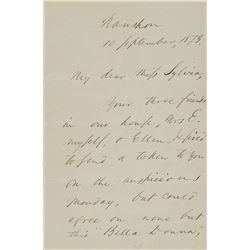 Naushon
10 September, 1873.
My dear Miss Sylvia,
Your three friends
in our house, Mrs E.
myself, & Ellen,
to send a token to you
on the auspicious
Monday, but could
agree on none but
this "Bella Donna,"